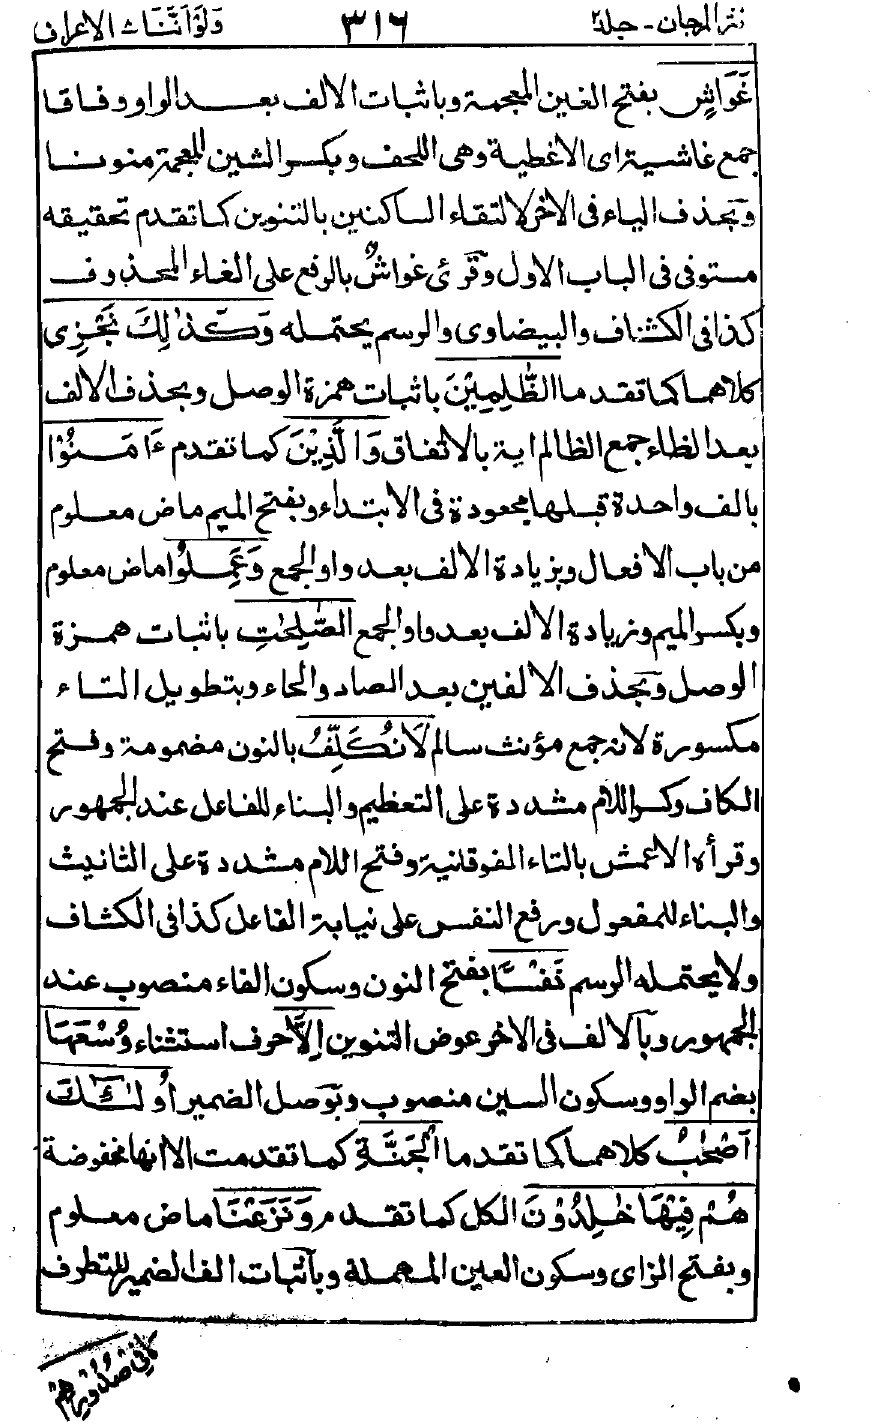 نثر المرجان - جلد٢ ٣١٦ ولو اننا ث الاعراف
غَوَاشٍ بفتح الغين المعجمة وباثبات الالف بعد الواو وفاقا
جمع غاشية اى الاغطية وهى اللحف وبكسر الشين المعجمة منونا
وبحذف الياء فى الاخر لالتقاء الساكنين بالتنوين كما تقدم تحقيقه
مستوفى فى الباب الاول وقرئ غواشٌ بالرفع على الغاء المحذوف
كذا فى الكشاف والبيضاوى والرسم يحتمله وَكَذٰلِكَ نَجْزِى
كلاهما كما تقدما الظّٰلِمِيْنَ باثبات همزة الوصل وبحذف الالف
بعد الظاء جمع الظالم اية بالاتفاق وَالَّذِيْنَ كما تقدم ءَامَنُوْا
بالف واحدة قبلها مجعودة فى الابتداء وبفتح الميم ماض معلوم
من باب الافعال وبزيادة الالف بعد واو الجمع وَعَمِلُوْا ماض معلوم
وبكسر الميم وزيادة الالف بعد واو الجمع الصّٰلِحٰتِ باثبات همزة
الوصل وبحذف الالفين بعد الصاد والحاء وبتطويل التاء
مكسورة لانه جمع مؤنث سالم لَانُكَلِّفُ بالنون مضمومة وفتح
الكاف وكسر اللام مشددة على التعظيم والبناء للفاعل عند الجمهور
وقرأه الاعمش بالتاء الفوقانية وفتح اللام مشددة على التانيث
والبناء للمفعول ورفع النفس على نيابة الفاعل كذا فى الكشاف
ولا يحتمله الرسم نَفْسًا بفتح النون وسكون الفاء منصوب عند
الجمهور وبالالف فى الاخر عوض التنوين اِلَّا حرف استثناء وُسْعَهَا
بضم الواو وسكون السين منصوب وبوصل الضمير اُولٰٓئِكَ
اَصْحٰبُ كلاهما كما تقدما الْجَنَّةِ كما تقدمت الا انها مخفوضة
هُمْ فِيْهَا خٰلِدُوْنَ الكل كما تقدم وَنَزَعْنَا ماض معلوم
وبفتح الزاى وسكون العين المهملة وباثبات الف الضمير للتطرف
مَا فِىْ صُدُوْرِهِمْ